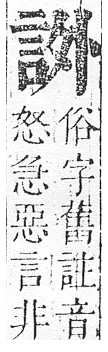 俗字舊註音
怒急惡言非